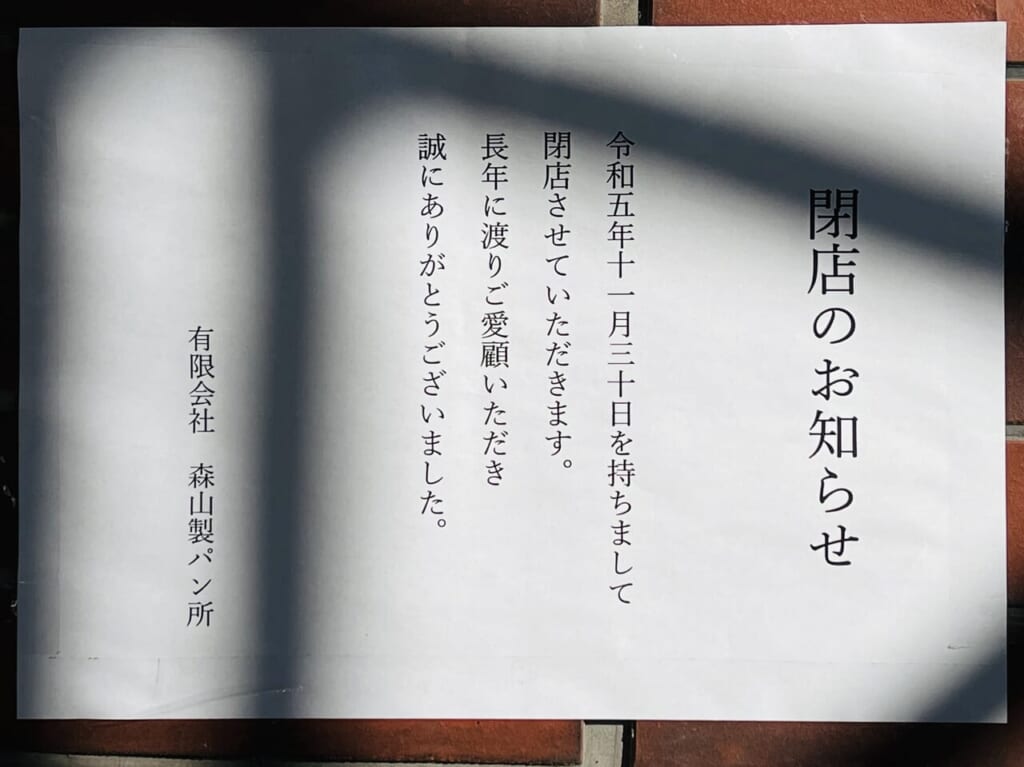 閉店のお知らせ
令和五年十一月三十日を持ちまして
閉店させていただきます。
長年に渡りご愛顧いただき
誠にありがとうございました。
有限会社　森山製パン所